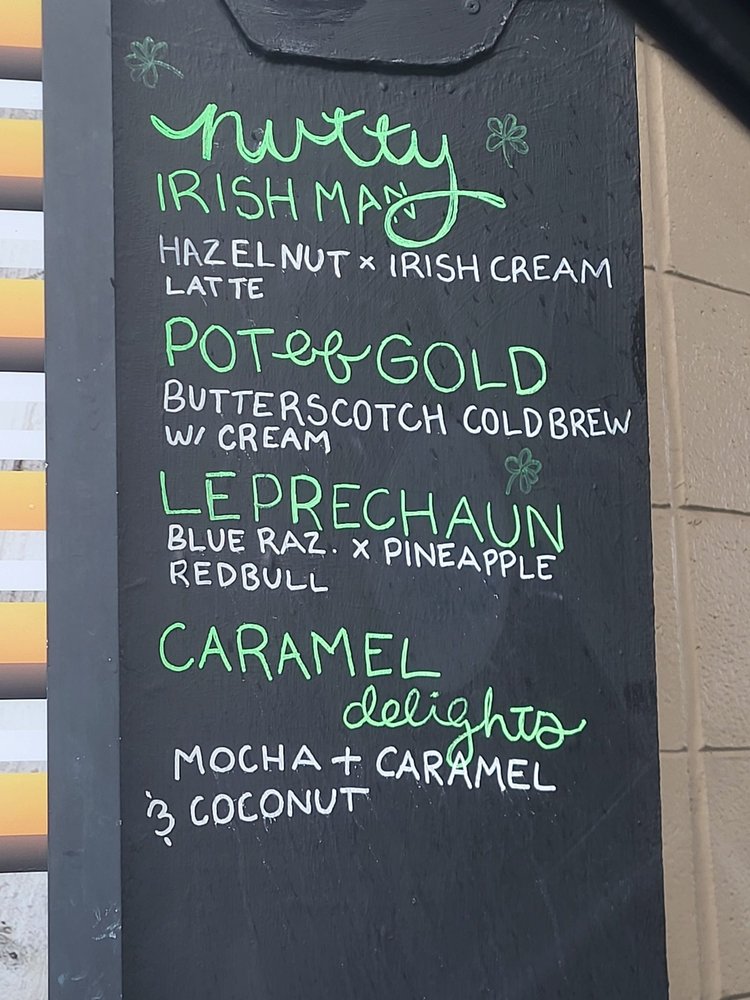 nutty
IRISH MAN
HAZELNUT x IRISH CREAM
LATTE
POT of GOLD
BUTTERSCOTCH COLDBREW
W/ CREAM
LEPRECHAUN
BLUE RAZ. x PINEAPPLE
REDBULL
CARAMEL
delights
MOCHA + CARAMEL
& COCONUT